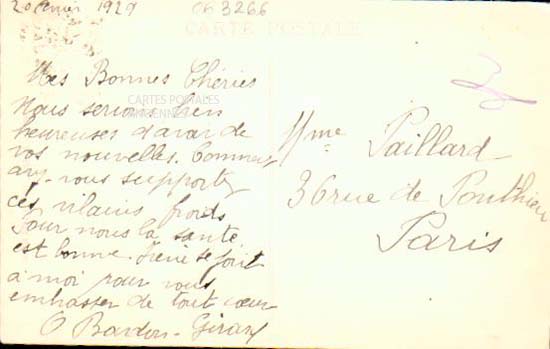 20 1929
CG 3266
CARTE POSTALE
Mes Bonnes Chéries
CARTES POSTALES
ANCIENNES
Nous serions bien
heureuses d'avoir de
vos nouvelles. Comment
avez-vous supporter
ces vilains froids
Pour nous la santé
est bonne. Irène se joint
à moi pour vous
embrasser de tout cœur
O Bardon-
Mme Paillard
36 rue de Ponthieu
Paris